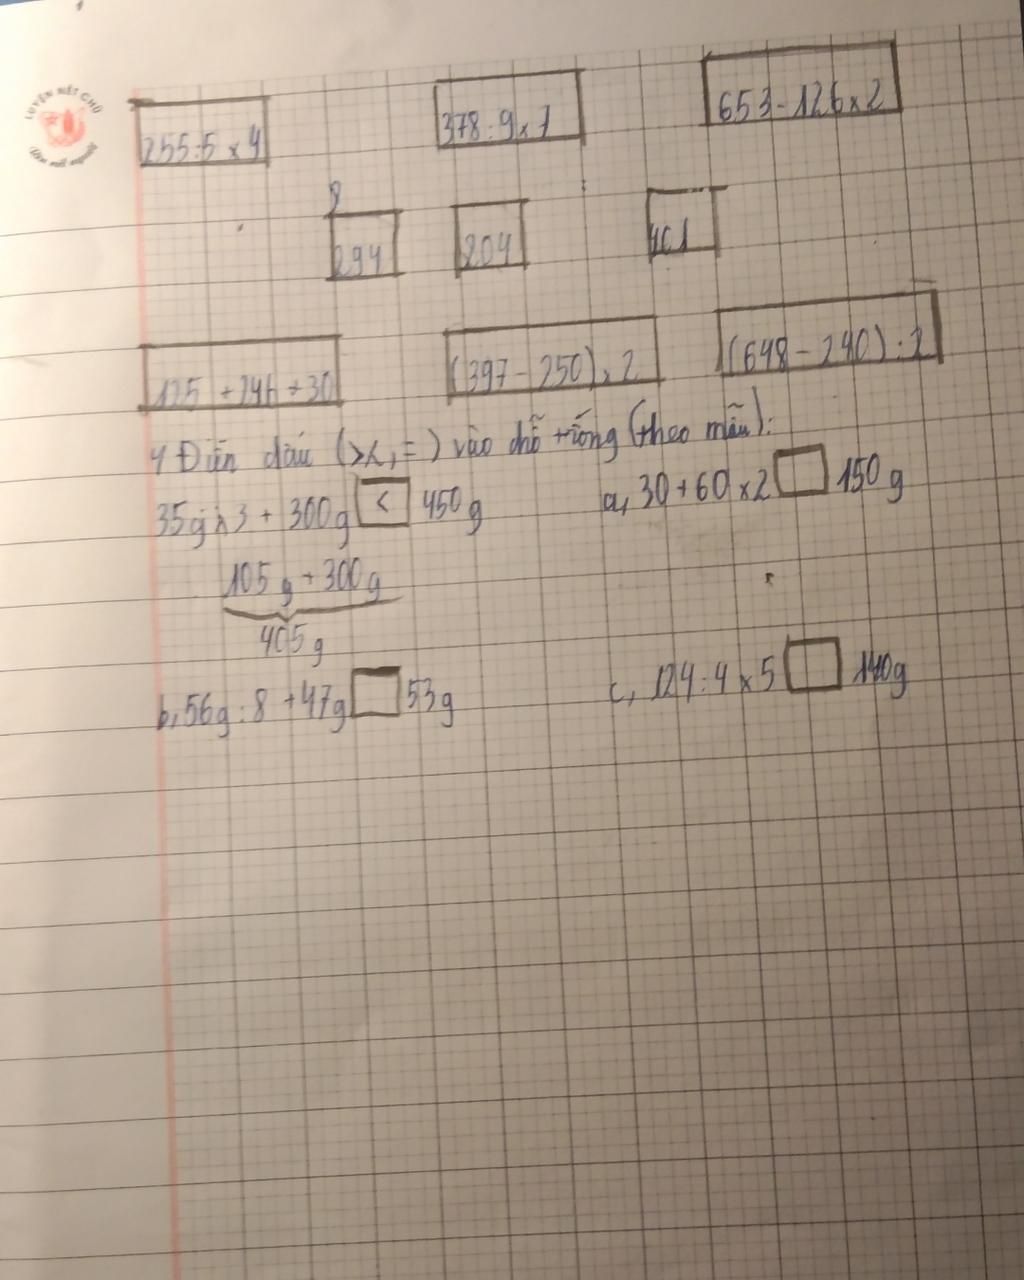 LUYỆN NÉT CHỮ
255:5 x 4
378:9x7
653-126x2
294
204
401
125 + 246 + 30
(397 - 250) x 2
(648 - 240) : 2
4 Điền dấu (><, =) vào chỗ trống (theo mẫu):
35g x 3 + 300g < 450g
a, 30 + 60 x 2 150 g
105 g + 300 g
405 g
b, 56g : 8 + 47g 53g
c, 124 : 4 x 5 140g